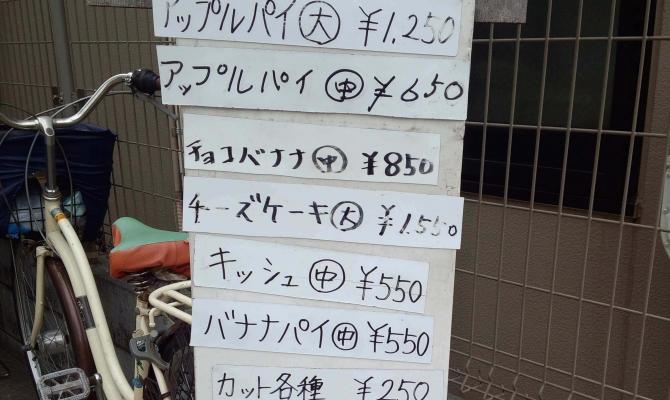 アップルパイ大 ¥1,250
アップルパイ中 ¥650
チョコバナナ中 ¥850
チーズケーキ大 ¥1,550
キッシュ中 ¥550
バナナパイ中 ¥550
カット各種 ¥250